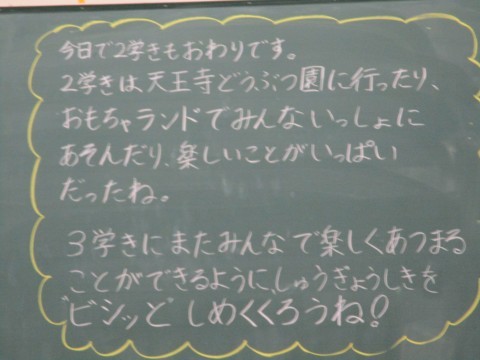 今日で2学きもおわりです。
2学きは天王寺どうぶつ園に行ったり、
おもちゃランドでみんないっしょに
あそんだり、楽しいことがいっぱい
だったね。
3学きにまたみんなで楽しくあつまる
ことができるように、しゅうぎょうしきを
ビシッとしめくくろうね!